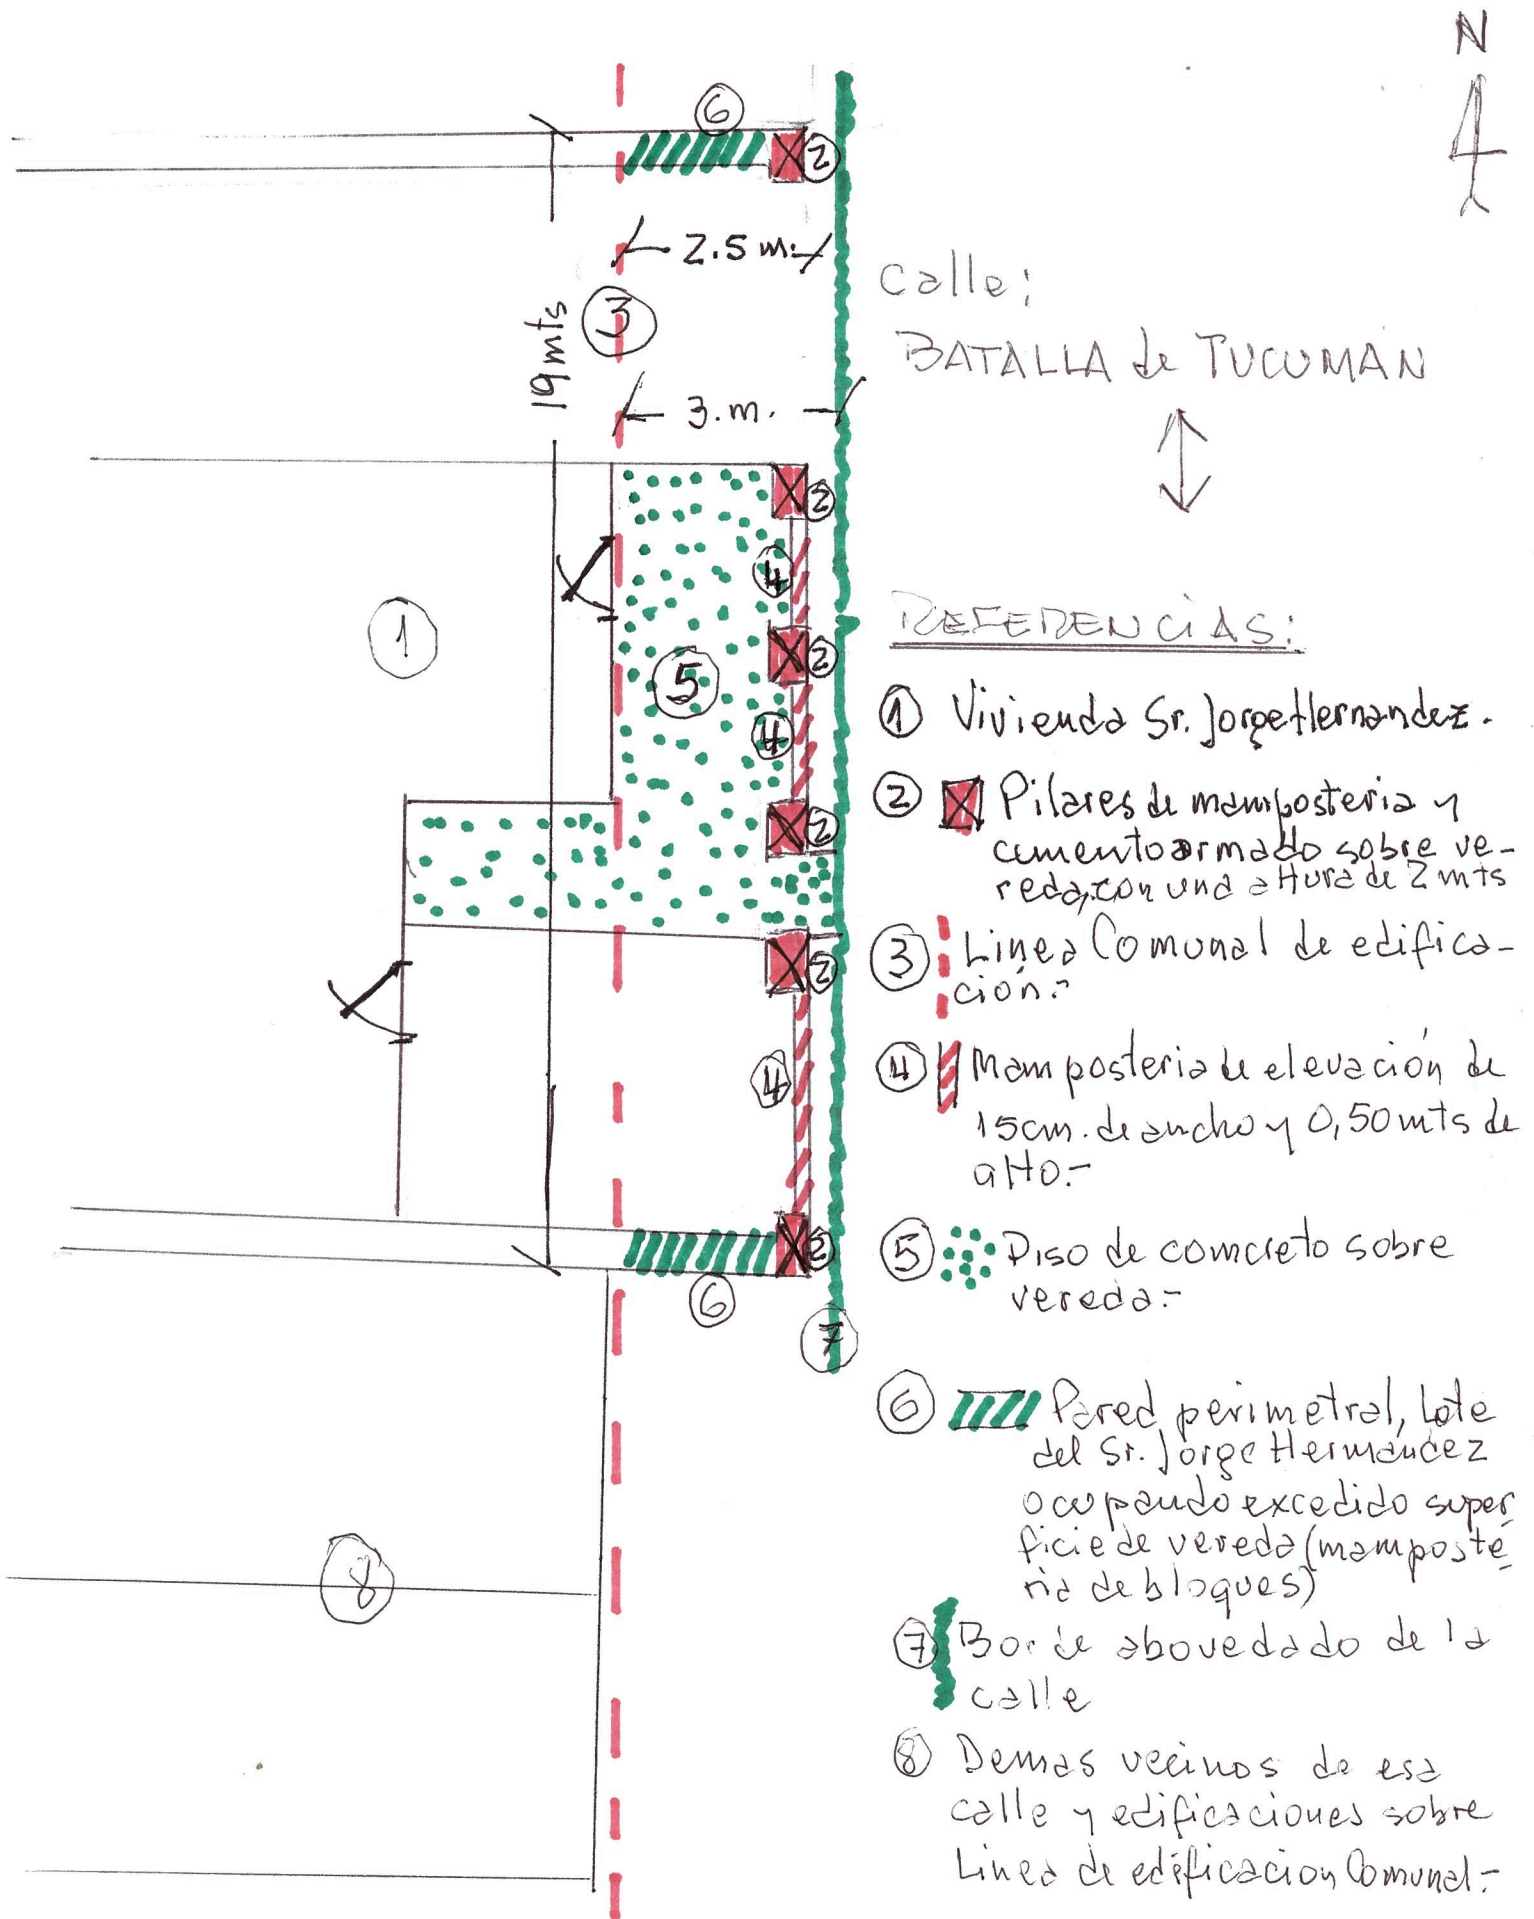 N
6
2
2.5 m.
Calle:
3
19 mts
BATALLA de TUCUMAN
3. m.
2
4
REFERENCIAS:
1
2
5
4
2
2
4
2
6
7
8
1 Vivienda Sr. Jorge Hernandez.
2 Pilares de mamposteria y
cemento armado sobre ve-
reda, con una altura de 2 mts
3 Linea Comunal de edifica-
ción.-
4 Mamposteria de elevación de
15cm. de ancho y 0,50 mts de
alto.-
5 Piso de comcreto sobre
vereda.-
6 Pared perimetral, Lote
del Sr. Jorge Hernández
ocupando excedido super
ficie de vereda (mamposte
ria de bloques)
7 Borde abovedado de la
calle
8 Demas vecinos de esa
calle y edificaciones sobre
Linea de edificacion Comunal.-